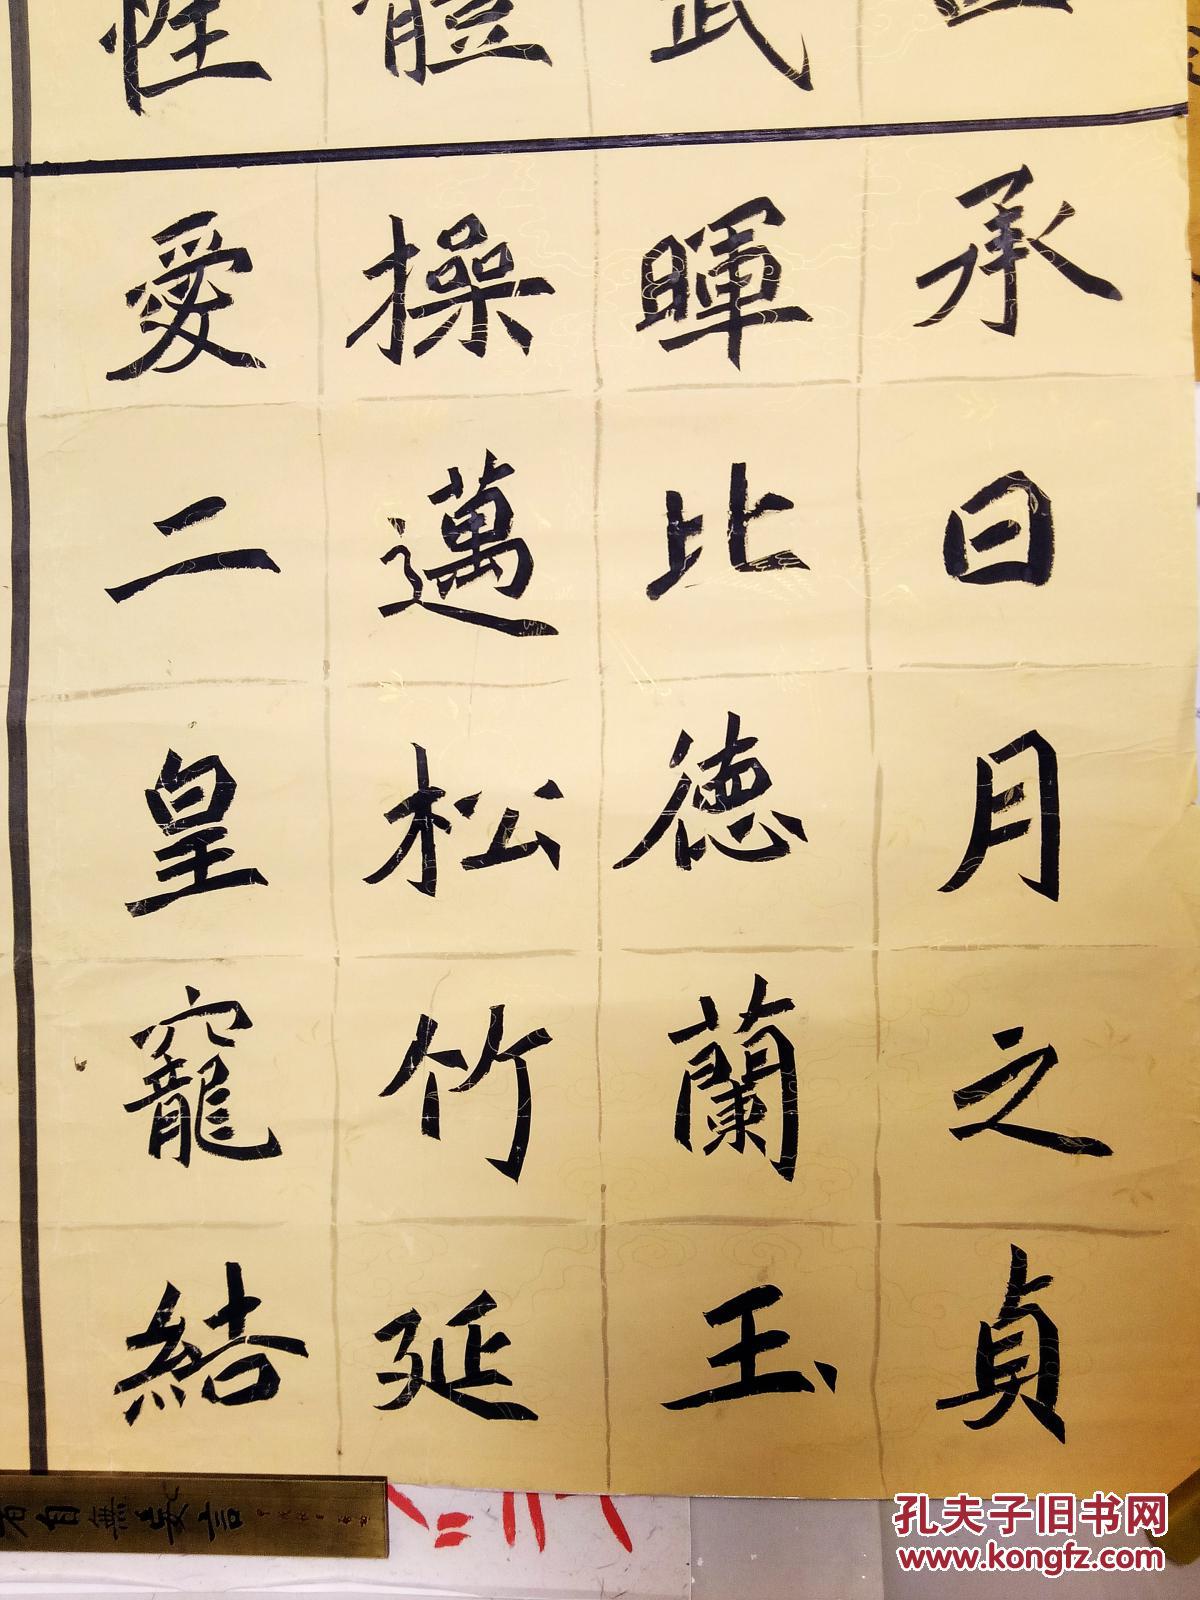 承日月之貞
武
暉比德蘭玉
體
操邁松竹延
愛二皇寵結
孔夫子旧书网
www.kongfz.com